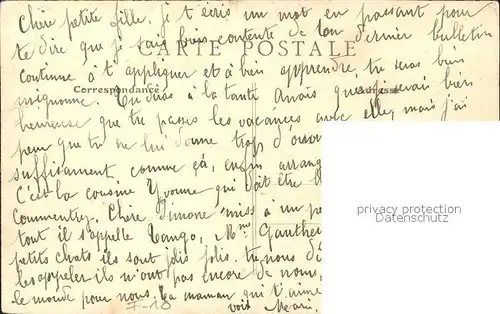 Chère petite fille, je t écris un mot en passant pour
te dire que je suis bien contente de ton dernier bulletin
CARTE POSTALE
continue à t appliquer et à bien apprendre, tu seras bien
mignonne.
Correspondance
Tu diras à la tante Anaïs que je serais bien
Adresse
heureuse que tu passes les vacances avec elle, mais j'ai
peur que tu ne lui donne trop d'ouvr
suffisament comme ça, enfin arrang
C'est la cousine Yvonne qui doit être
Commentrez. Chère Simone miss a un pe
tout il s'appelle Tango, Mme Gauthe
petits chats ils sont jolis jolis, tu nous di
les appeler ils n'ont pas encore de nom,
le monde pour nous. Ta maman qui t'aime
voir
7-18
privacy protection
Datenschutz